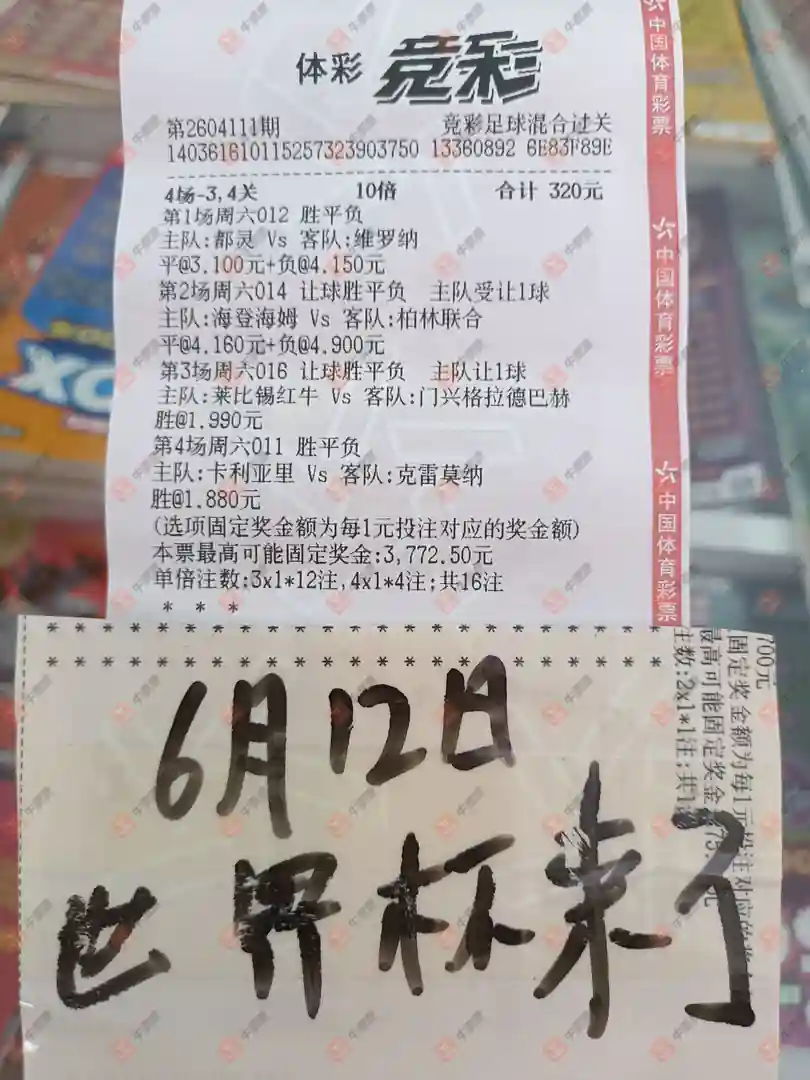 体彩 竞彩
第2604111期 竞彩足球混合过关
140361610115257323903750 13360892 6E83F89E
4场-3,4关 10倍 合计 320元
第1场周六012 胜平负
主队:都灵 Vs 客队:维罗纳
平@3.100元+负@4.150元
第2场周六014 让球胜平负 主队受让1球
主队:海登海姆 Vs 客队:柏林联合
平@4.160元+负@4.900元
第3场周六016 让球胜平负 主队让1球
主队:莱比锡红牛 Vs 客队:门兴格拉德巴赫
胜@1.990元
第4场周六011 胜平负
主队:卡利亚里 Vs 客队:克雷莫纳
胜@1.880元
(选项固定奖金额为每1元投注对应的奖金额)
本票最高可能固定奖金:3,772.50元
单倍注数:3x1*12注,4x1*4注;共16注
* * *
中国体育彩票
中国体育彩票
中国体育彩票
* * * * * * * * * * * * * * * * * * * * * * *
* * * * * * * * * * * * * * * * * * * * * * *
700元
固定奖金额为每1元投注对应的
最高可能固定奖金
主数:2x1*1注;共1
6月12日
世界杯来了
牛谱票